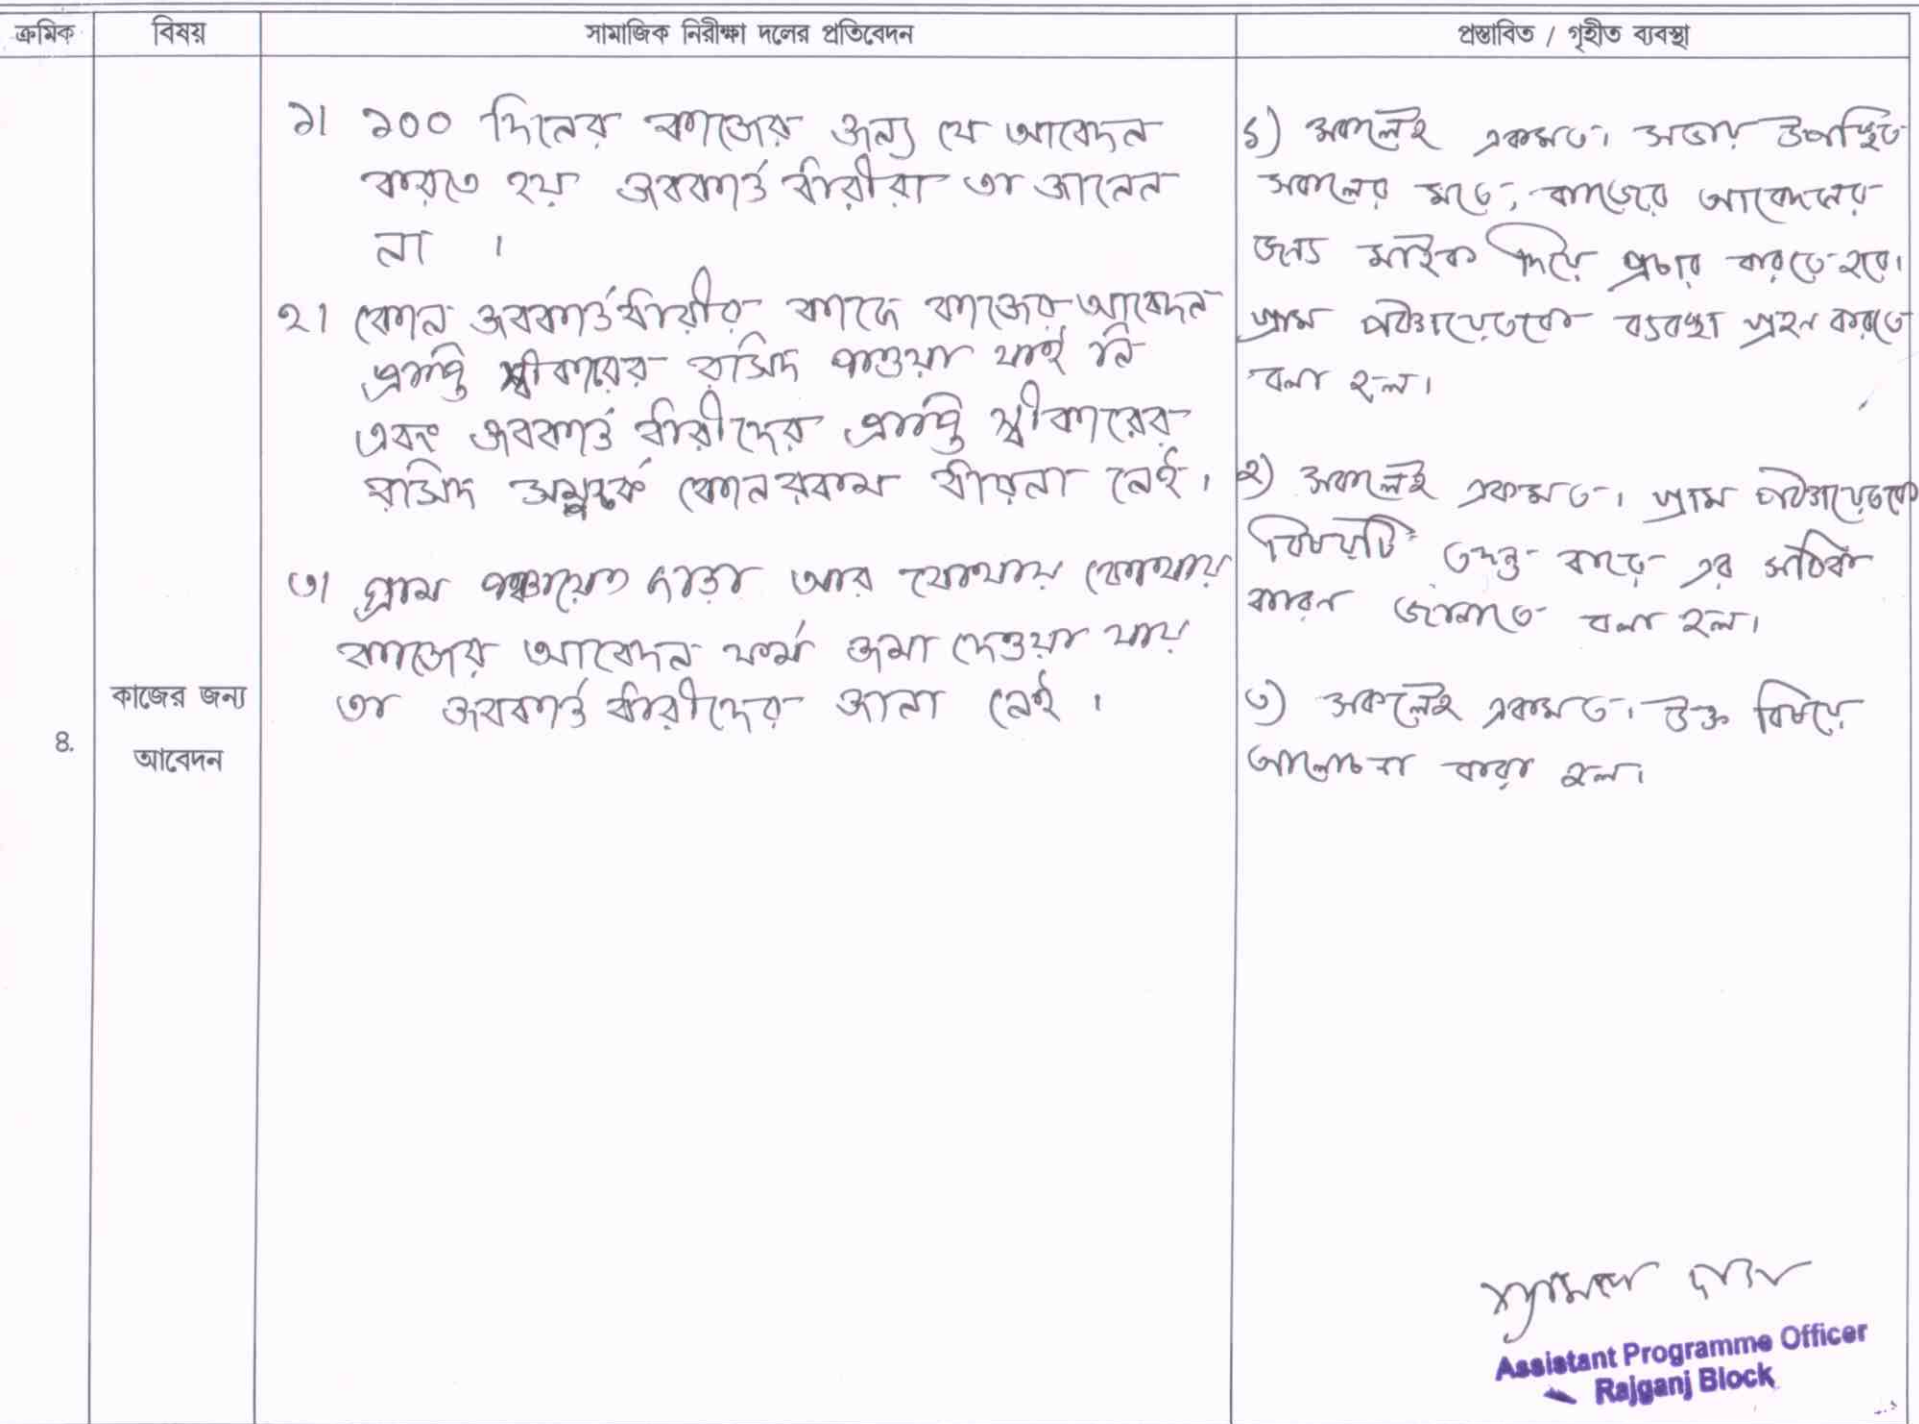 ক্রমিক বিষয় সামাজিক নিরীক্ষা দলের প্রতিবেদন প্রস্তাবিত / গৃহীত ব্যবস্থা
৪.
কাজের জন্য
আবেদন
১। ১০০ দিনের কাজের জন্য যে আবেদন
করতে হয় জবকার্ড ধারীরা তা জানেন
না ।
২। কোন জবকার্ড ধারীর কাছে কাজের আবেদন
প্রাপ্তি স্বীকারের রসিদ পাওয়া যাই নি
এবং জবকার্ড ধারীদের প্রাপ্তি স্বীকারের
রসিদ সম্পর্কে কোনরকম ধারনা নেই।
৩। গ্রাম পঞ্চায়েত ছাড়া আর কোথায় কোথায়
কাজের আবেদন ফর্ম জমা দেওয়া যায়
তা জবকার্ড ধারীদের জানা নেই ।
১) সকলেই একমত। সভায় উপস্থিত
সকলের মতে, কাজের আবেদনের
জন্য মাইক দিয়ে প্রচার করতে হবে।
গ্রাম পঞ্চায়েতকে ব্যবস্থা গ্রহন করতে
বলা হল।
২) সকলেই একমত। গ্রাম পঞ্চায়েতকে
বিষয়টি তদন্ত করে এর সঠিক
কারন জানাতে বলা হল।
৩) সকলেই একমত। উক্ত বিষয়ে
আলোচনা করা হল।
Assistant Programme Officer
Rajganj Block